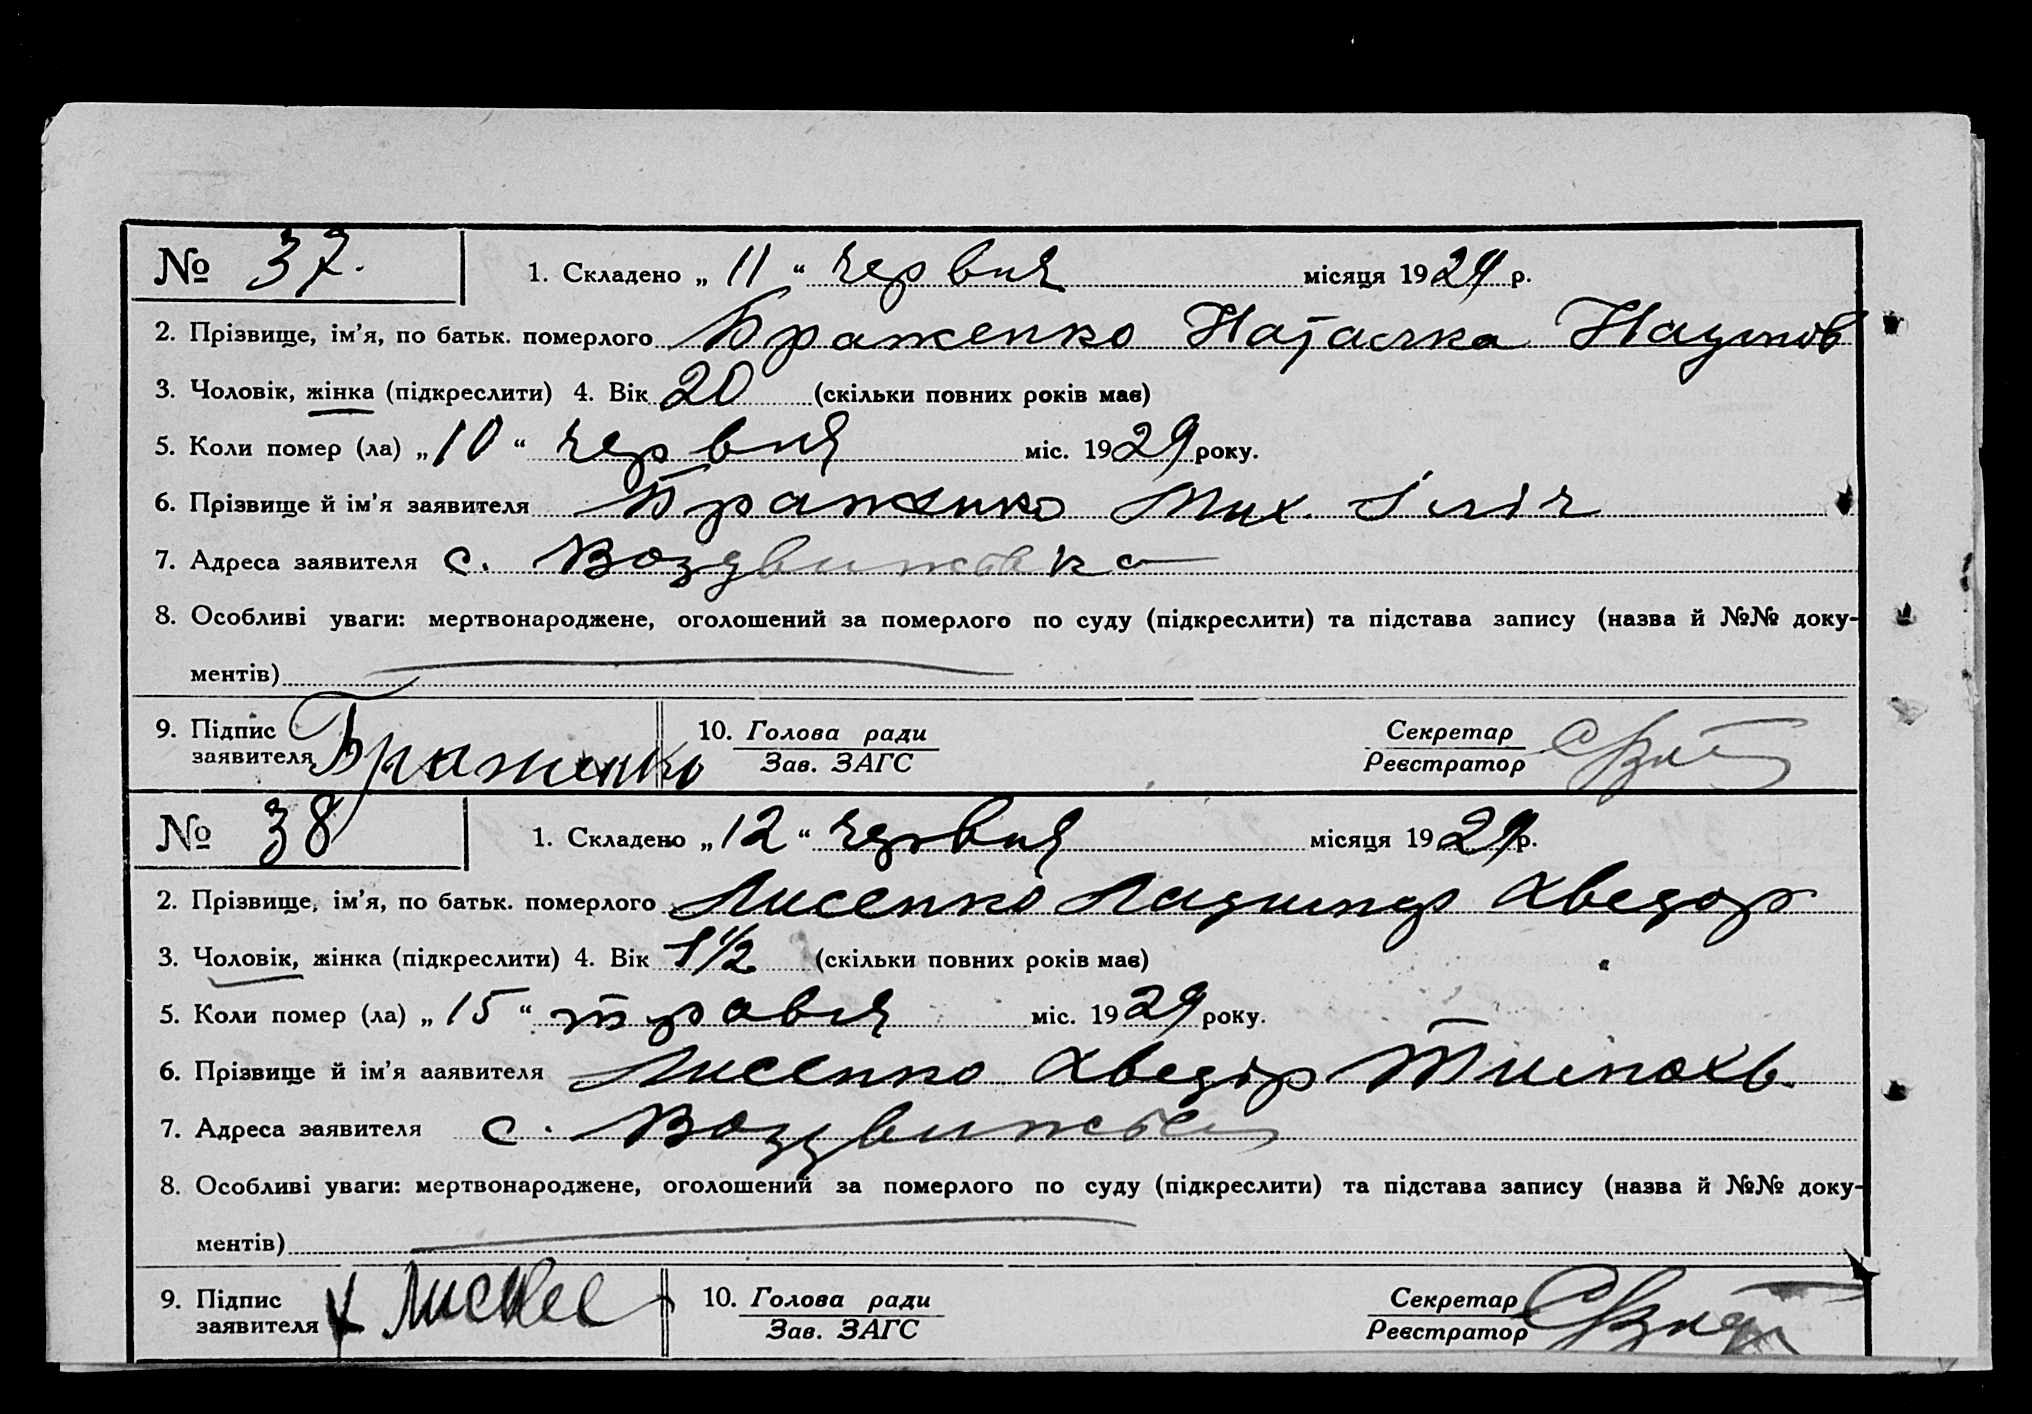 № 37. 1. Складено „ 11 “ червня місяця 1929 р.
2. Прізвище, ім’я, по батьк. померлого Браженко Наталка Наумов
3. Чоловік, жінка (підкреслити) 4. Вік 20 (скільки повних років має)
5. Коли помер (ла) „ 10 “ червня міс. 1929 року.
6. Прізвище й ім’я заявителя Браженко Мих. Ілліч
7. Адреса заявителя с. Воздвижевка
8. Особливі уваги: мертвонароджене, оголошений за померлого по суду (підкреслити) та підстава запису (назва й №№ доку-
ментів)
9. Підпис заявителя Браженко 10. Голова ради Зав. ЗАГС Секретар Реєстратор
№ 38 1. Складено „ 12 “ червня місяця 1929 р.
2. Прізвище, ім’я, по батьк. померлого Лисенко Хведор
3. Чоловік, жінка (підкреслити) 4. Вік 1 1/2 (скільки повних років має)
5. Коли помер (ла) „ 15 “ травня міс. 1929 року.
6. Прізвище й ім’я ааявителя Лисенко Хведір Тимохв.
7. Адреса заявителя с.
8. Особливі уваги: мертвонароджене, оголошений за померлого по суду (підкреслити) та підстава запису (назва й №№ доку-
ментів)
9. Підпис заявителя 10. Голова ради Зав. ЗАГС Секретар Реєстратор